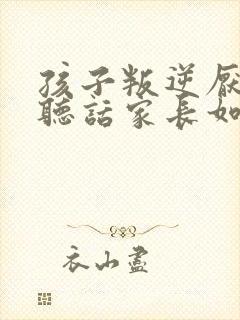 孩子叛逆厌
聽話家長如
衣山盡